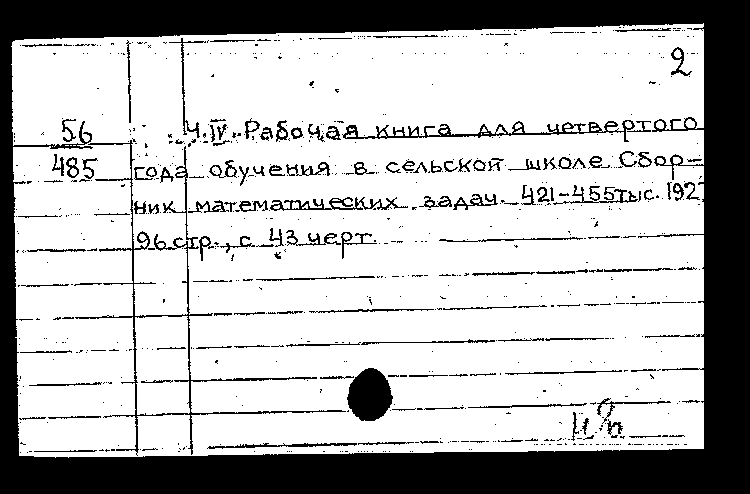 2
56
485
Ч. IV. Рабочая книга для четвертого
года обучения в сельской школе Сбор-
ник математических задач. 421-455 тыс. 192
96 стр., с 43 черт.